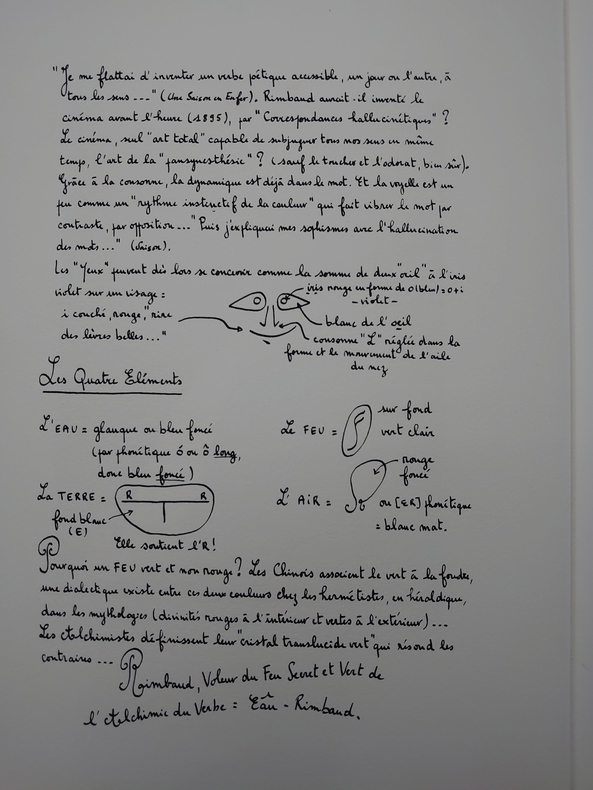 "Je me flattai d'inventer un verbe poétique accessible, un jour ou l'autre, à
tous les sens ..." (Une Saison en Enfer). Rimbaud aurait-il inventé le
cinéma avant l'heure (1895), par "Correspondances hallucinétiques" ?
Le cinéma, seul "art total" capable de subjuguer tous nos sens en même
temps, l'art de la "pansynesthésie" ? (sauf le toucher et l'odorat, bien sûr).
Grâce à la consonne, la dynamique est déjà dans le mot. Et la voyelle est un
peu comme un "rythme instinctif de la couleur" qui fait vibrer le mot par
contraste, par opposition... "Puis j'expliquai mes sophismes avec l'hallucination
des mots..." (Saison).
Les "Yeux" peuvent dès lors se concevoir comme la somme de deux "œil" à l'iris
violet sur un visage :
iris rouge en forme de O (bleu) = O + i
- violet -
i couché, rouge, "rire
des lèvres belles..."
blanc de l'œil
consonne "L" réglée dans la
forme et le mouvement de l'aile
du nez
Les Quatre Eléments
L'EAU = glauque ou bleu foncé
(par phonétique ó ou ô long,
donc bleu foncé)
Le FEU =
sur fond
vert clair
La TERRE =
R R
T
fond blanc
(E)
Elle soutient l'R !
L'AiR =
rouge
foncé
ou [ER] phonétique
= blanc mat.
Pourquoi un FEU vert et non rouge ? Les Chinois associent le vert à la foudre,
une dialectique existe entre ces deux couleurs chez les hermétistes, en héraldique,
dans les mythologies (divinités rouges à l'intérieur et vertes à l'extérieur)...
Les Alchimistes définissent leur "cristal translucide vert" qui résoud les
contraires ...
Rimbaud, Voleur du Feu Secret et Vert de
l'Alchimie du Verbe = Eau - Rimbaud.